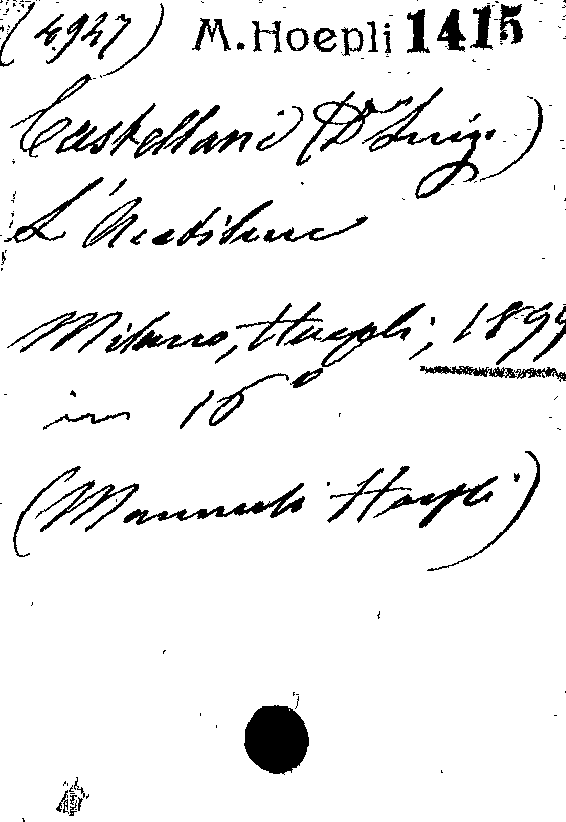 (4927) M. Hoepli 1415
Castellani (Dr Luigi)
L'Acetilene
Milano, Hoepli, 1899
in 16°
(Manuali Hoepli)